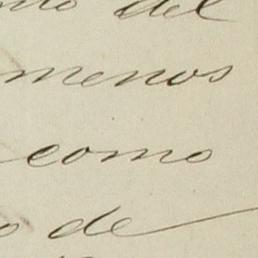 del
menos
como
de